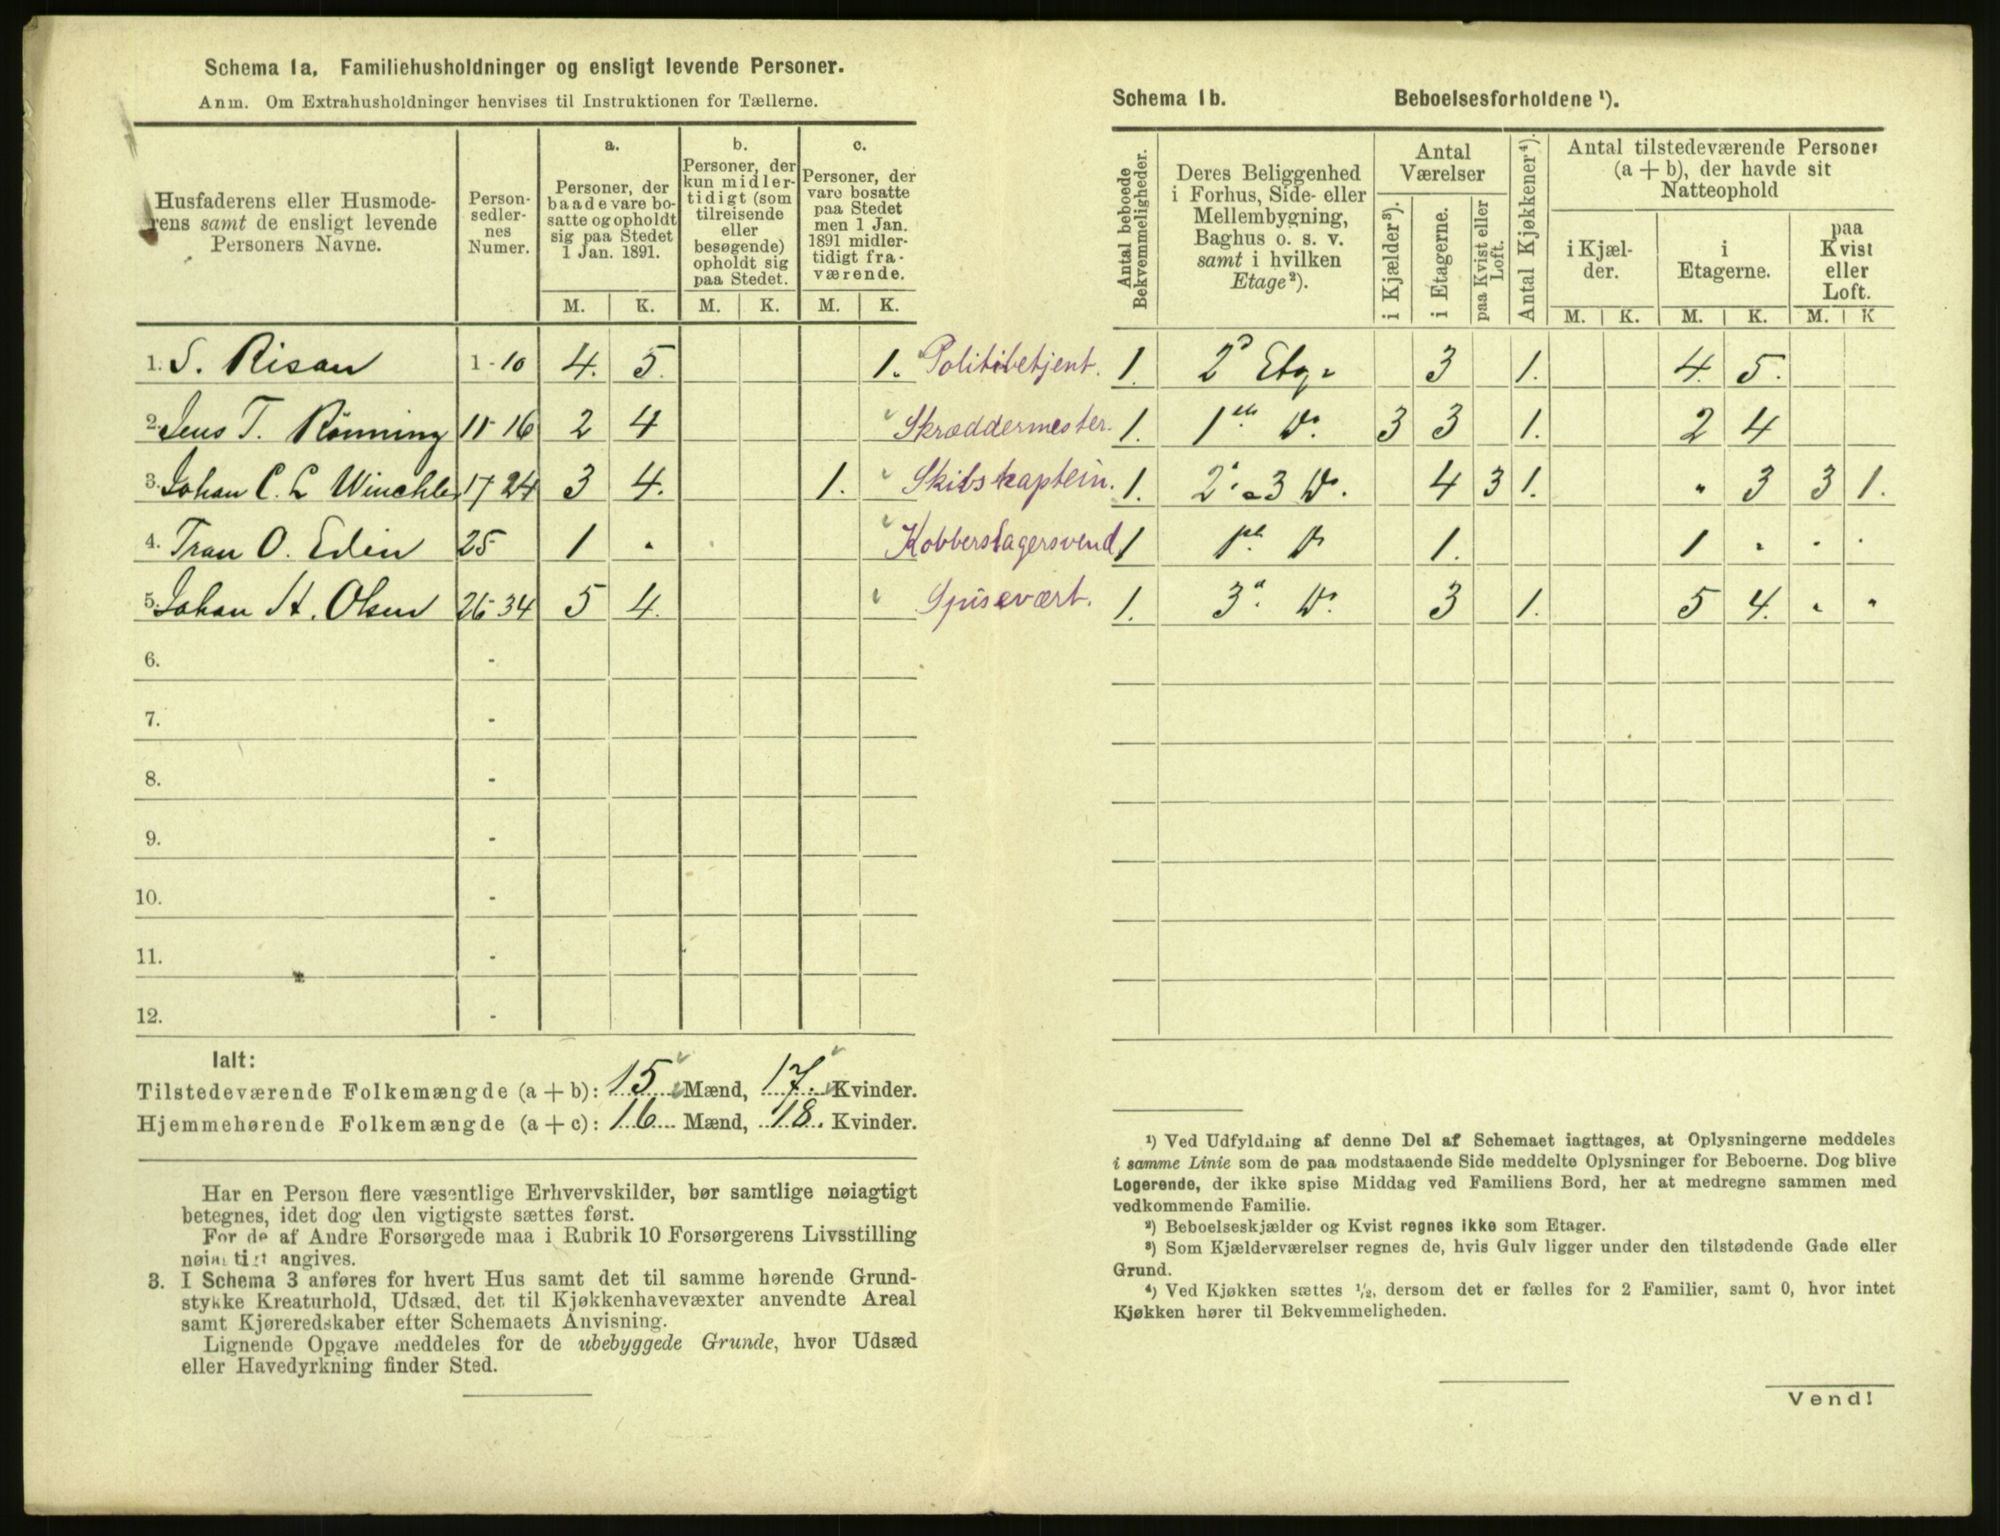 Schema 1a. Familiehusholdninger og ensligt levende Personer.
Anm. Om Extrahusholdninger henvises til Instruktionen for Tællerne.
Husfaderens eller Husmode-
rens samt de ensligt levende
Personers Navne.
Person-
sedler-
nes
Numer.
a.
Personer, der
baade vare bo-
satte og opholdt
sig paa Stedet
1 Jan. 1891.
b.
Personer, der
kun midler-
tidigt (som
tilreisende
eller
besøgende)
opholdt sig
paa Stedet.
c.
Personer, der
vare bosatte
paa Stedet
men 1 Jan.
1891 midler-
tidigt fra-
værende.
M. K. M. K. M. K.
1. S. Risan 1-10 4. 5. 1. Politibetjent.
2. Jens T. Rønning 11-16 2 4 Skræddermester.
3. Johan C. L Winchler 17-24 3 4. 1. Skibskaptein.
4. Tran O. Edin 25- 1 - Kobberslagersvend
5. Johan H. Olsen 26-34 5 4. Spisevært.
6. -
7. -
8. -
9. -
10. -
11. -
12. -
Ialt:
Tilstedeværende Folkemængde (a + b): 15 Mænd, 17. Kvinder.
Hjemmehørende Folkemængde (a + c): 16 Mænd, 18. Kvinder.
Har en Person flere væsentlige Erhvervskilder, bør samtlige nøiagtigt
betegnes, idet dog den vigtigste sættes først.
For de af Andre Forsørgede maa i Rubrik 10 Forsørgerens Livsstilling
nøiagtigt angives.
3. I Schema 3 anføres for hvert Hus samt det til samme hørende Grund-
stykke Kreaturhold, Udsæd, det til Kjøkkenhavevæxter anvendte Areal
samt Kjøreredskaber efter Schemaets Anvisning.
Lignende Opgave meddeles for de ubebyggede Grunde, hvor Udsæd
eller Havedyrkning finder Sted.
Schema 1b. Beboelsesforholdene ¹).
Antal beboede
Bekvemmeligheder.
Deres Beliggenhed
i Forhus, Side- eller
Mellembygning,
Baghus o. s. v.
samt i hvilken
Etage²).
Antal
Værelser
i Kjælder³).
i Etagerne.
paa Kvist eller
Loft.
Antal Kjøkkener⁴).
Antal tilstedeværende Personer
(a + b), der havde sit
Natteophold
i Kjæl-
der.
i
Etagerne.
paa
Kvist
eller
Loft.
M. K. M. K. M. K
1. 2d Etg. 3 1. 4. 5.
1. 1ste Do. 3 3 1. 2 4
1. 2. - 3 Do. 4 3 1. " 3 3 1.
1 1ste Do 1. 1 " " "
1. 3d. Do. 3 1. 5 4. " "
¹) Ved Udfyldning af denne Del af Schemaet iagttages, at Oplysningerne meddeles
i samme Linie som de paa modstaaende Side meddelte Oplysninger for Beboerne. Dog blive
Logerende, der ikke spise Middag ved Familiens Bord, her at medregne sammen med
vedkommende Familie.
²) Beboelseskjælder og Kvist regnes ikke som Etager.
³) Som Kjælderværelser regnes de, hvis Gulv ligger under den tilstødende Gade eller
Grund.
⁴) Ved Kjøkken sættes ½, dersom det er fælles for 2 Familier, samt 0, hvor intet
Kjøkken hører til Bekvemmeligheden.
Vend!